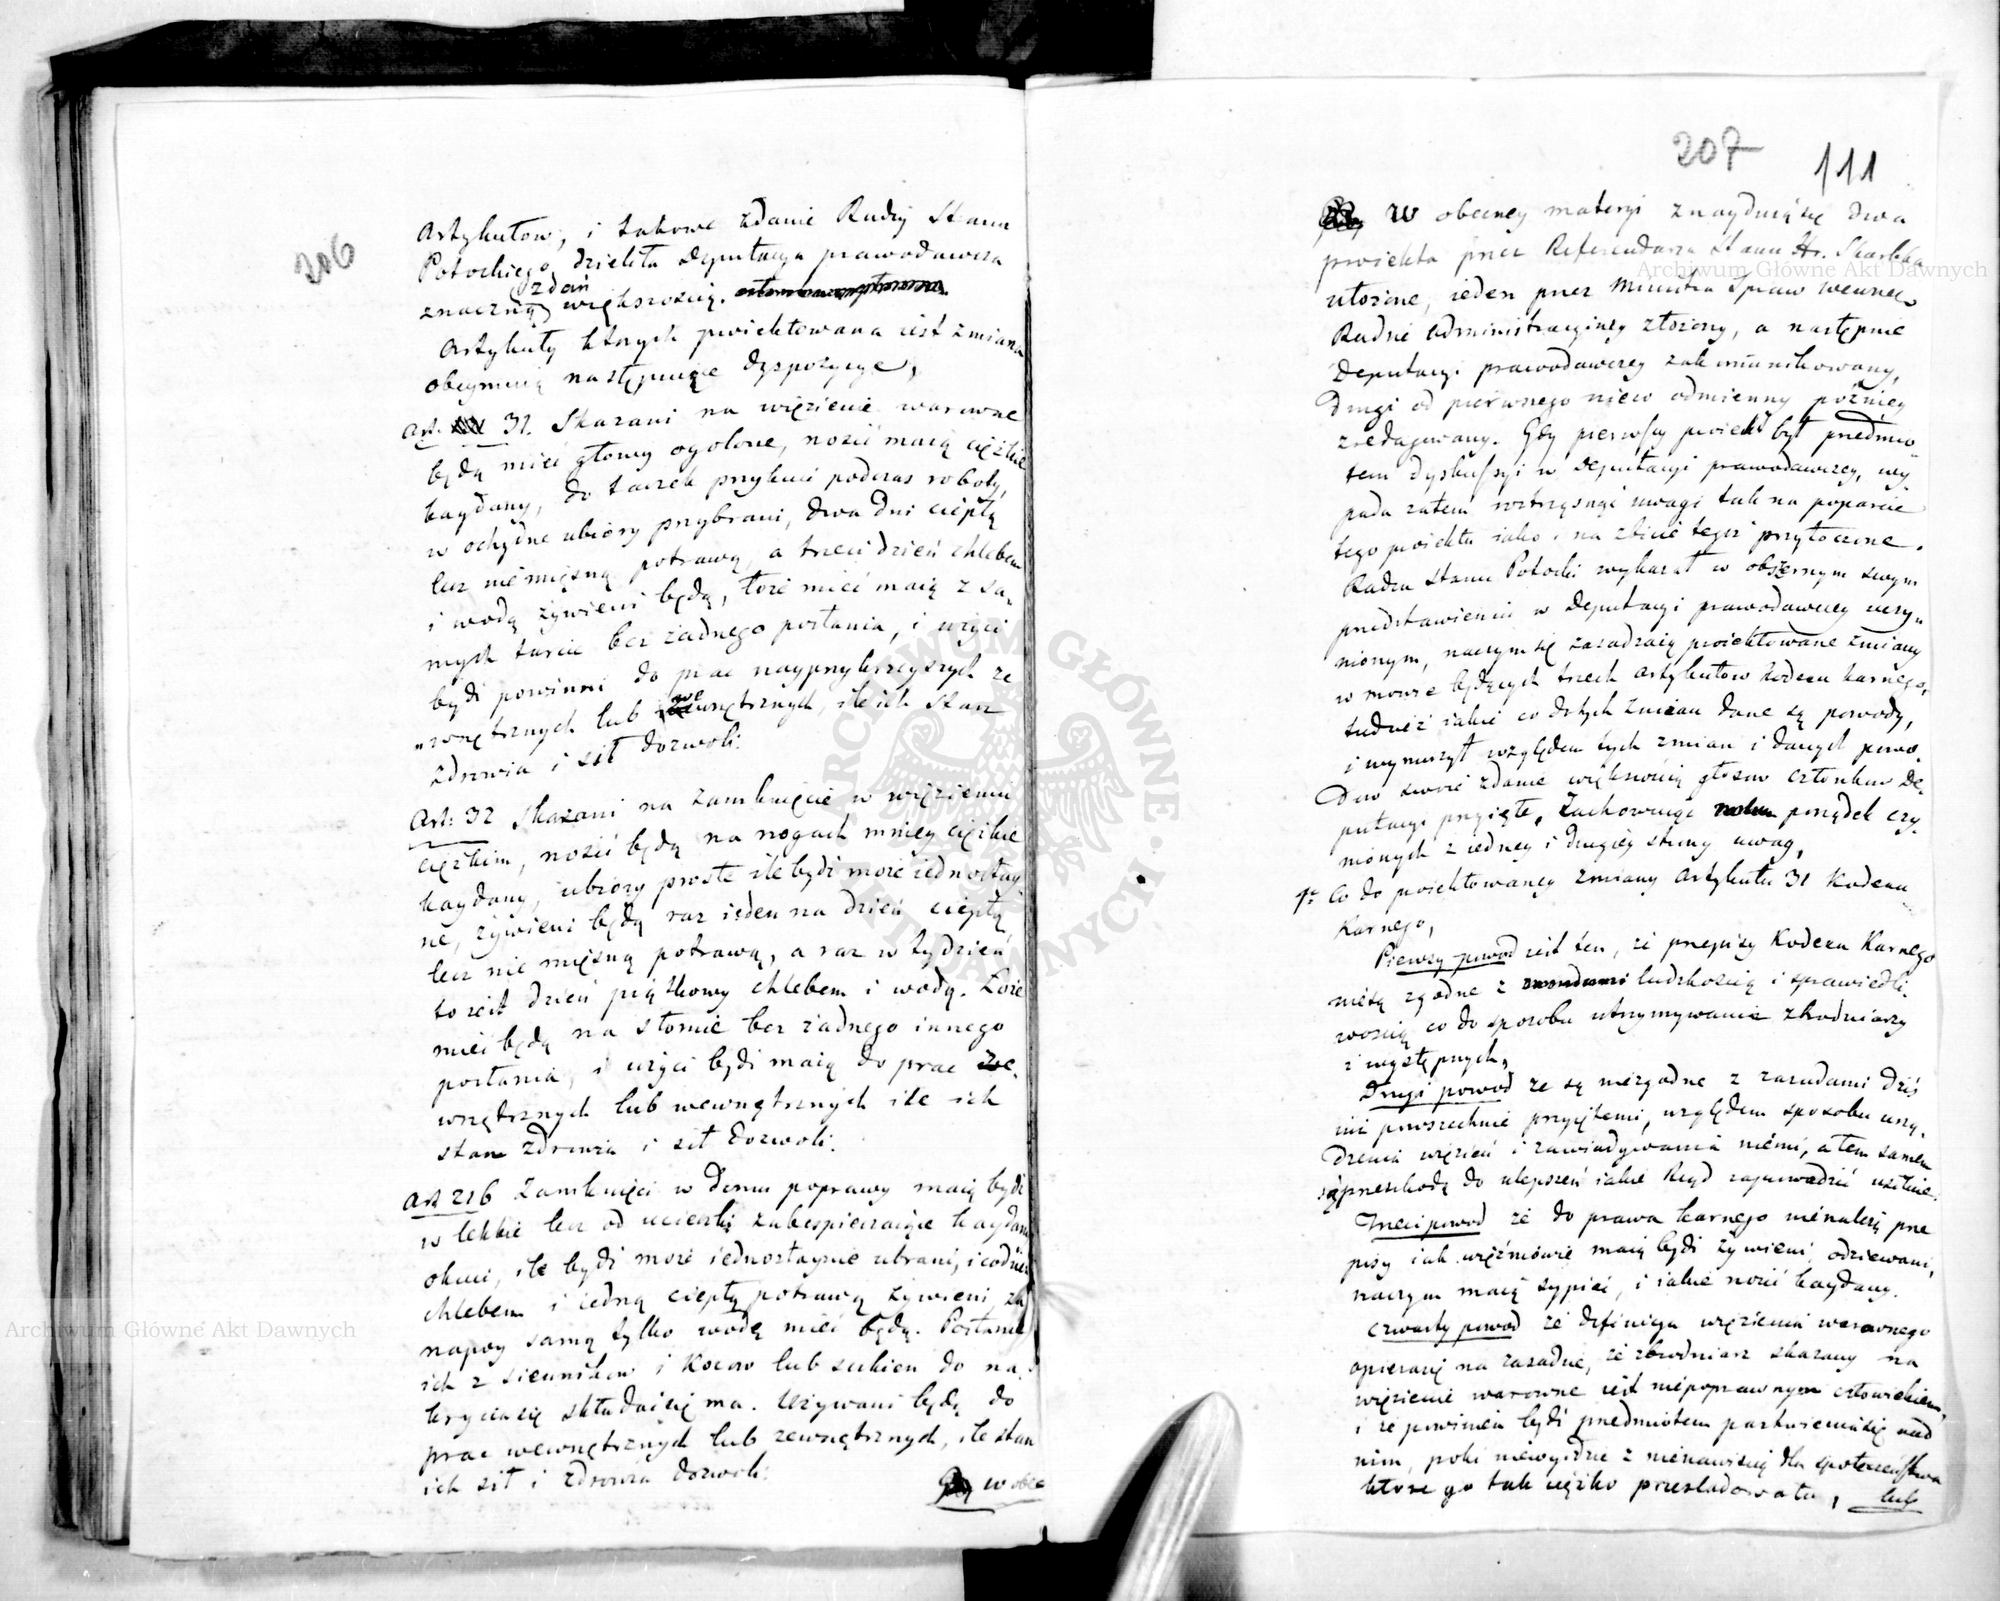 206
Artykułow, i takowe zdanie Radcy Stanu
Potockiego dzieliła Deputacya prawodawcza
znaczną zdań większością.
Artykuły ktorych proiektowana iest zmiana
obeymuią następuiące dyspozycye,
Art. 31. Skazani na więzienie warowne
będą mieć głowy ogolone, nosić maią ciężkie
kaydany, do taczek przykuci podczas roboty,
w ochydne ubiory przybrani, dwa dni ciepłą
lecz niemięsną potrawą, a trzeci dzień chlebem
i wodą żywieni będą, łoże mieć maią z sa-
mych tarcic bez żadnego posłania, i użyci
bydź powinni do prac nayprzykrzeyszych ze
"wnętrznych lub wewnętrznych, ile ich stan
zdrowia i sił dozwoli.
Art: 32 Skazani na zamknięcie w więzieniu
ciężkim, nosić będą na nogach mniey ciężkie
kaydany, ubiory proste ile bydź może iednostay-
ne, żywieni będą raz ieden na dzień ciepłą
lecz nie mięsną potrawą, a raz w tydzień
to iest dzień piątkowy chlebem i wodą. Łoże
mieć będą na słomie bez żadnego innego
posłania, i użyci bydź maią do prac ze-
wnętrznych lub wewnętrznych ile ich
stan zdrowia i sił dozwoli.
Art 216 Zamknięci w domu poprawy maią bydź
w lekkie lecz od ucieczki zabespieczaiące kaydany
okuci, ile bydź może iednostaynie ubrani, i codzień
chlebem i iedną ciepłą potrawą żywieni za
napoy samą tylko wodę mieć będą. Posłanie
ich z siennikow i kocow lub sukien do na-
krycia się składać się ma. Używani będą do
prac wewnętrznych lub zewnętrznych, ile stan
ich sił i zdrowia dozwoli.
w obec
207 111
W obecney materyi znayduią się dwa
proiekta przez Referendarza Stanu Hr. Skarbka
ułożone, ieden przez Ministra Spraw Wewnęt.
Radzie Administracyiney złożony, a następnie
Deputacyi prawodawczey zakommunikowany,
Drugi od pierwszego nieco odmienny pozniey
zredagowany. Gdy pierwszy proiekt był przedmio-
tem dyskussyi w Deputacyi prawodawczey, wy-
pada zatem roztrząsnąć uwagi tak na poparcie
tego proiektu iako i na zbicie tegoż przytoczone.
Radca Stanu Potocki wykazał w obszernym swym
przedstawieniu w Deputacyi prawodawczey uczy-
nionym, na czym się zasadzaią proiektowane zmiany
w mowie będących trzech artykułow Kodexu karnego,
tudzież iakie co do tych zmian dane są powody,
i wynurzył względem tych zmian i danych powo-
dow swoie zdanie większością głosow członkow De-
putacyi przyięte, Zachowuiąc porządek czy-
nionych z iedney i drugiey strony uwag,
1° Co do proiektowaney zmiany Artykułu 31 Kodexu
Karnego,
Pierwszy powod iest ten, że przepisy Kodexu Karnego
niesą zgodne z ludzkością i sprawiedli-
wością co do sposobu utrzymywania zbrodniarzy
i występnych,
Drugi powod że są niezgodne z zasadami dziś
iuż powszechnie przyiętemi, względem sposobu urzą-
dzenia więzień i zawiadywania niemi, a tem samem
są przeszkodą do ulepszeń iakie Rząd zaprowadzić usiłuie.
Trzeci powod że do prawa karnego nienależą prze
pisy iak więźniowie maią bydź żywieni, odziewani,
na czym maią sypiać, i iakie nosić kaydany.
Czwarty powod że definicya więzienia warownego
opiera się na zasadzie, że zbrodniarz skazany na
więzienie warowne iest niepoprawnym człowiekiem,
i że powinien bydź przedmiotem pastwienia się nad
nim, poki niewyidzie z nienawiścią dla społeczeństwa
ktore go tak ciężko prześladowało, lub
Archiwum Główne Akt Dawnych
Archiwum Główne Akt Dawnych
ARCHIWUM GŁÓWNE AKT DAWNYCH